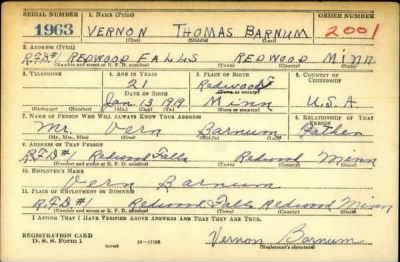 SERIAL NUMBER 1. NAME (Print) ORDER NUMBER
1963 VERNON THOMAS BARNUM 2001
(First) (Middle) (Last)
2. ADDRESS (Print)
R.F.D#1 REDWOOD FALLS REDWOOD MINN
(Number and street or R. F. D. number) (Town) (County) (State)
3. TELEPHONE 4. AGE IN YEARS 5. PLACE OF BIRTH 6. COUNTRY OF CITIZENSHIP
21 Redwood
DATE OF BIRTH (Town or county)
Jan. 13 1919 Minn U.S.A
(Mo.) (Day) (Yr.) (State or country)
7. NAME OF PERSON WHO WILL ALWAYS KNOW YOUR ADDRESS 8. RELATIONSHIP OF THAT PERSON
Mr. Vern Barnum Father
(Mr., Mrs., Miss) (First) (Middle) (Last)
9. ADDRESS OF THAT PERSON
R.F.D#1 Redwood Falls Redwood Minn
(Number and street or R. F. D. number) (Town) (County) (State)
10. EMPLOYER'S NAME
Vern Barnum
11. PLACE OF EMPLOYMENT OR BUSINESS
R.F.D #1 Redwood Falls Redwood Minn
(Number and street or R. F. D. number) (Town) (County) (State)
I AFFIRM THAT I HAVE VERIFIED ABOVE ANSWERS AND THAT THEY ARE TRUE.
REGISTRATION CARD
D. S. S. Form 1 (over) Vernon Barnum
(Registrant's signature)